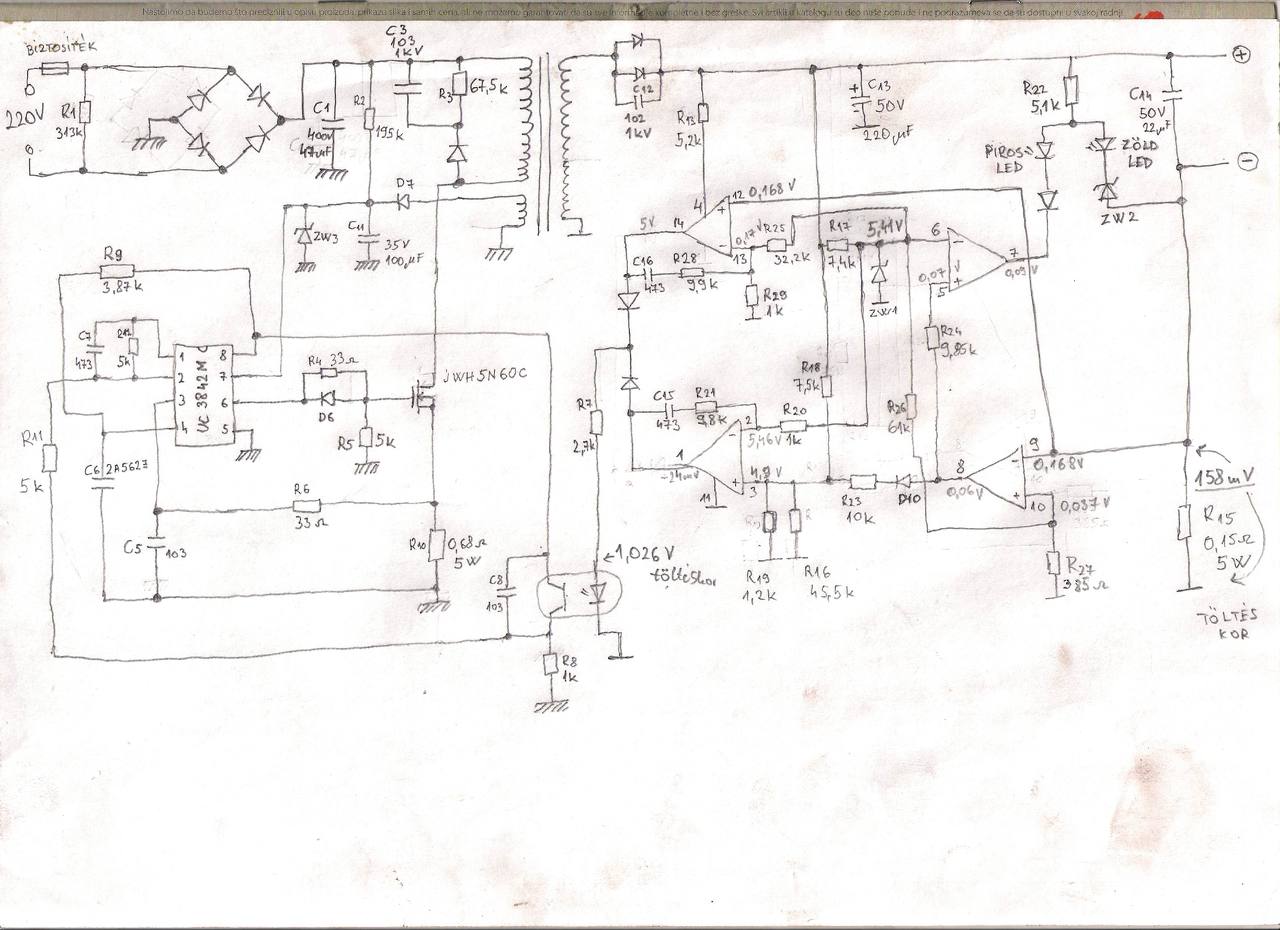 Nastojimo da budemo što precizniji u opisu proizoda, prikazu slika i samih cena, ali ne možemo garantovati da su sve informacije kompletne i bez greške. Svi artikli u katalogu su deo naše ponude i ne podrazumeva se da su dostupni u svakoj radnji
BIZTOSÍTÉK
220V
R1
313k
C1
400V
47µF
R2
195k
C3
103
1kV
R3
67,5k
C12
102
1kV
R13
5,2k
C13
50V
220µF
R22
5,1k
PIROS
LED
ZÖLD
LED
ZW2
C14
50V
22µF
+
−
D7
ZW3
C11
35V
100µF
R9
3,87k
C7
473
R12
5k
UC 3842M
1
2
3
4
8
7
6
5
R4
33Ω
D6
R5
5k
JWH5N60C
R11
5k
C6
2A562J
C5
103
R6
33Ω
R10
0,68Ω
5W
C8
103
R8
1k
1,026V
töltéskor
R7
2,7k
5V
14
4
12
0,168V
0,17V
13
C16
473
R28
9,9k
R25
32,2k
R29
1k
R17
7,4k
5,41V
ZW1
6
7
5
0,07V
0,09V
R24
9,85k
R18
7,5k
R26
61k
C15
473
R21
9,8k
R20
1k
2
5,46V
1
-24mV
11
3
4,9V
R23
10k
D10
8
0,06V
9
0,168V
10
0,037V
R19
1,2k
R16
45,5k
R27
385Ω
158mV
R15
0,15Ω
5W
TÖLTÉS
KOR